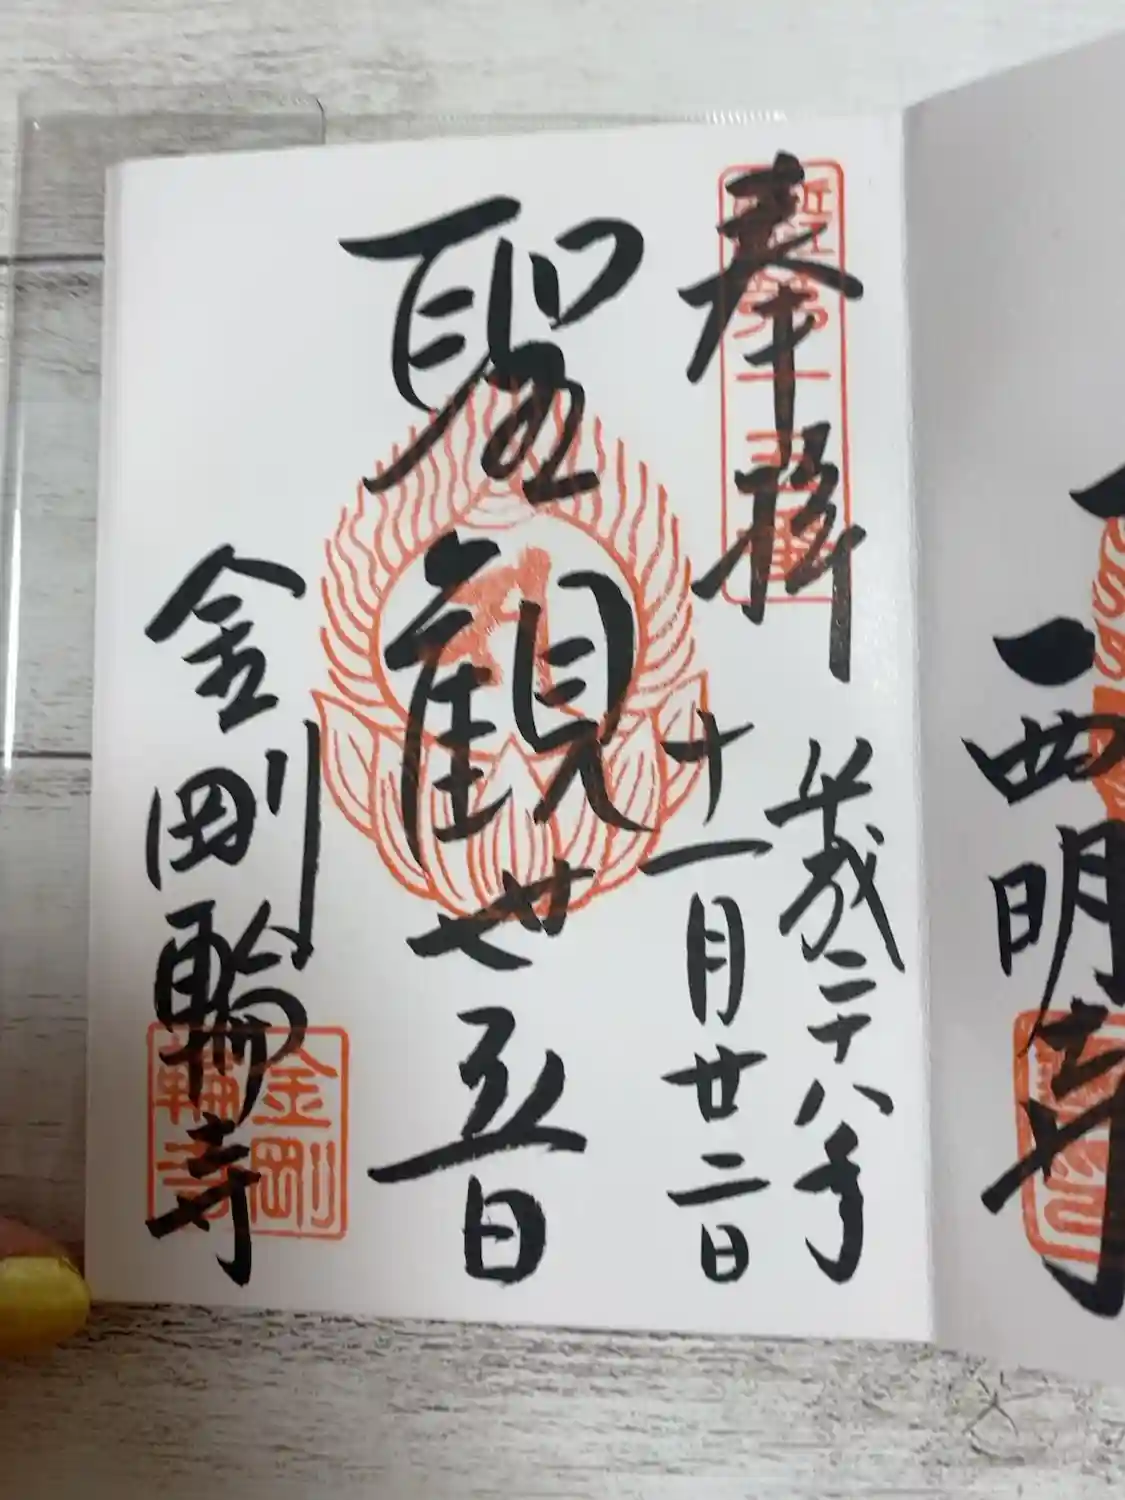 西明寺
奉拝
近江第十五番
平成二十八年
十一月廿二日
聖観世音
金剛輪寺
金剛
輪寺